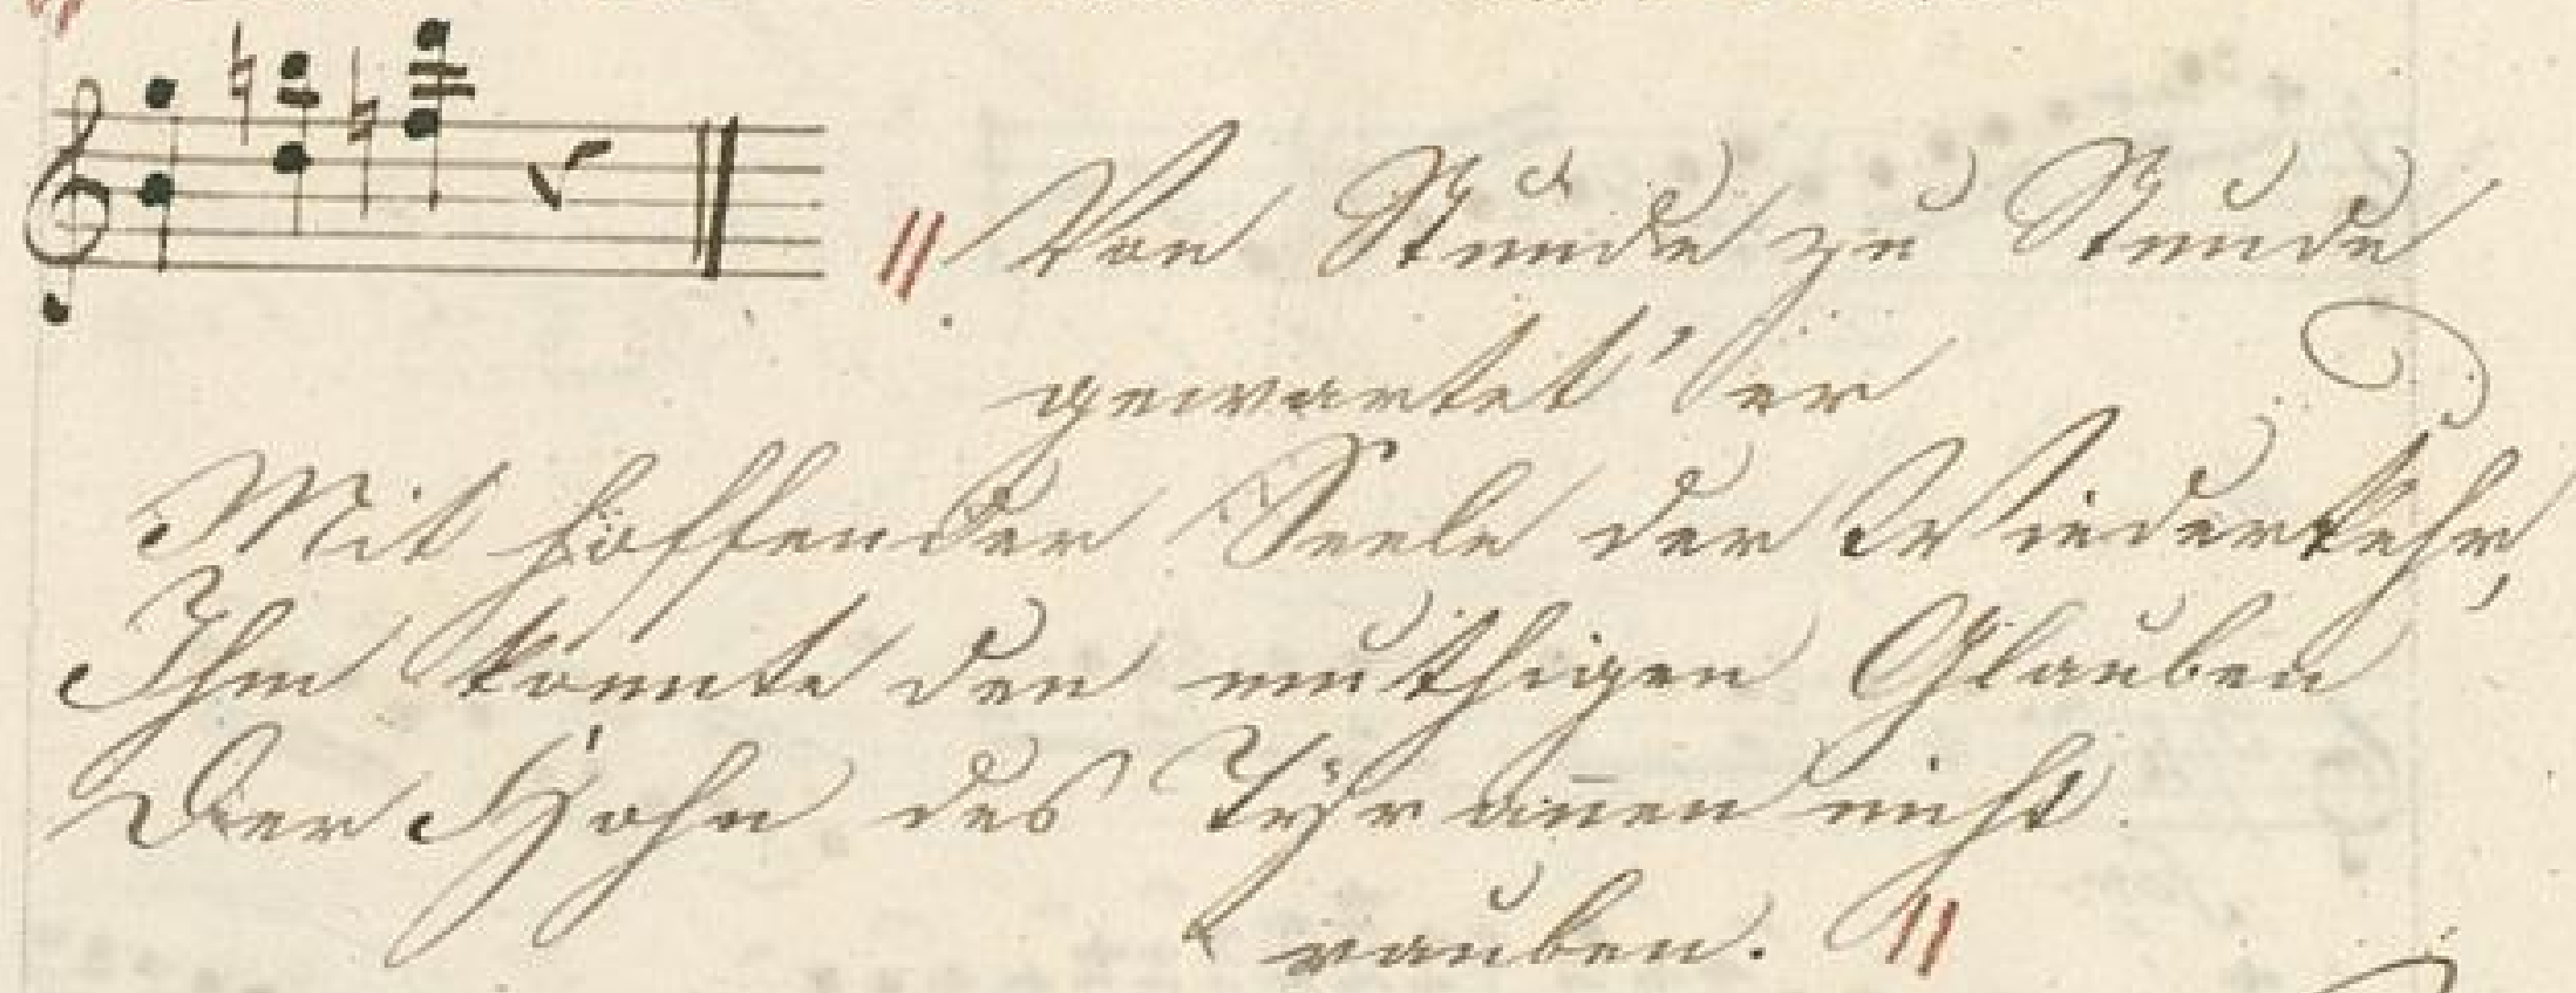 Von Stunde zu Stunde
gewartet' er
Mit hoffender Seele der Wiederkehr,
Ihm konnte den muthigen Glauben
Der Hohn des Tyrannen nicht
rauben.